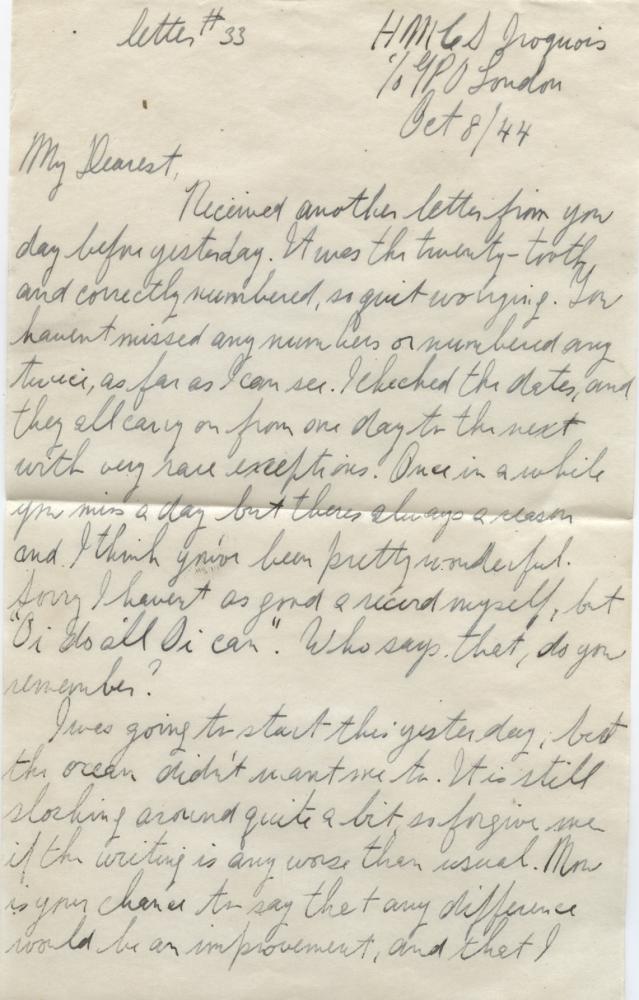 letter #33
HMCS Iroquois
c/o GPO London
Oct 8/44
My Dearest,
Received another letter from you
day before yesterday. It was the twenty-tooth,
and correctly numbered, so quit worrying. You
havent missed any numbers or numbered any
twice, as far as I can see. I checked the dates, and
they all carry on from one day to the next
with very rare exceptions. Once in a while
you miss a day but theres always a reason
and I think you've been pretty wonderful.
Sorry I havent as good a record myself, but
"Oi do all Oi can". Who says that, do you
remember?
I was going to start this yesterday, but
the ocean didn't want me to. It is still
sloshing around quite a bit, so forgive me
if the writing is any worse than usual. Now
is your chance to say that any difference
would be an improvement, and that I